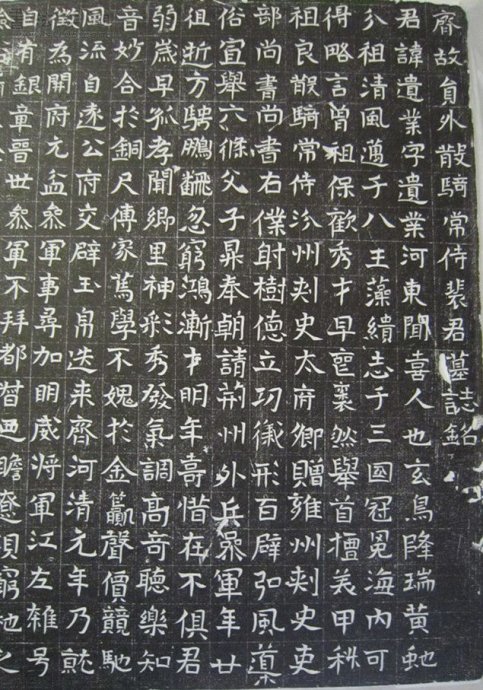 齊故員外散騎常侍裴君墓誌銘
君諱遺業字遺業河東聞喜人也玄鳥降瑞黃虵
分祖清風邁于八王藻繢志于三國冠冕海內可
得略言曾祖保歡秀才早邕褎然舉首擅美甲科
祖良散騎常侍汾州刺史太府卿贈雍州刺史吏
部尚書尚書右僕射樹德立功儀形百辟弘風藁
俗宣舉六條父子昇奉朝請荊州外兵叅軍年廿
徂逝方騁鵬翻忽窮鴻漸才明年壽惜在不俱君
弱歲早孤孝聞鄉里神彩秀發氣調高奇聽樂知
音妙合於銅尺傳家篤學不媿於金籯聲價競馳
風流自遠公府交辟玉帛迭來齊河清元年乃就
徵為開府元盆叅軍事尋加明威將軍江左雜号
自有銀章晉世叅軍不拜都督迴瞻遼